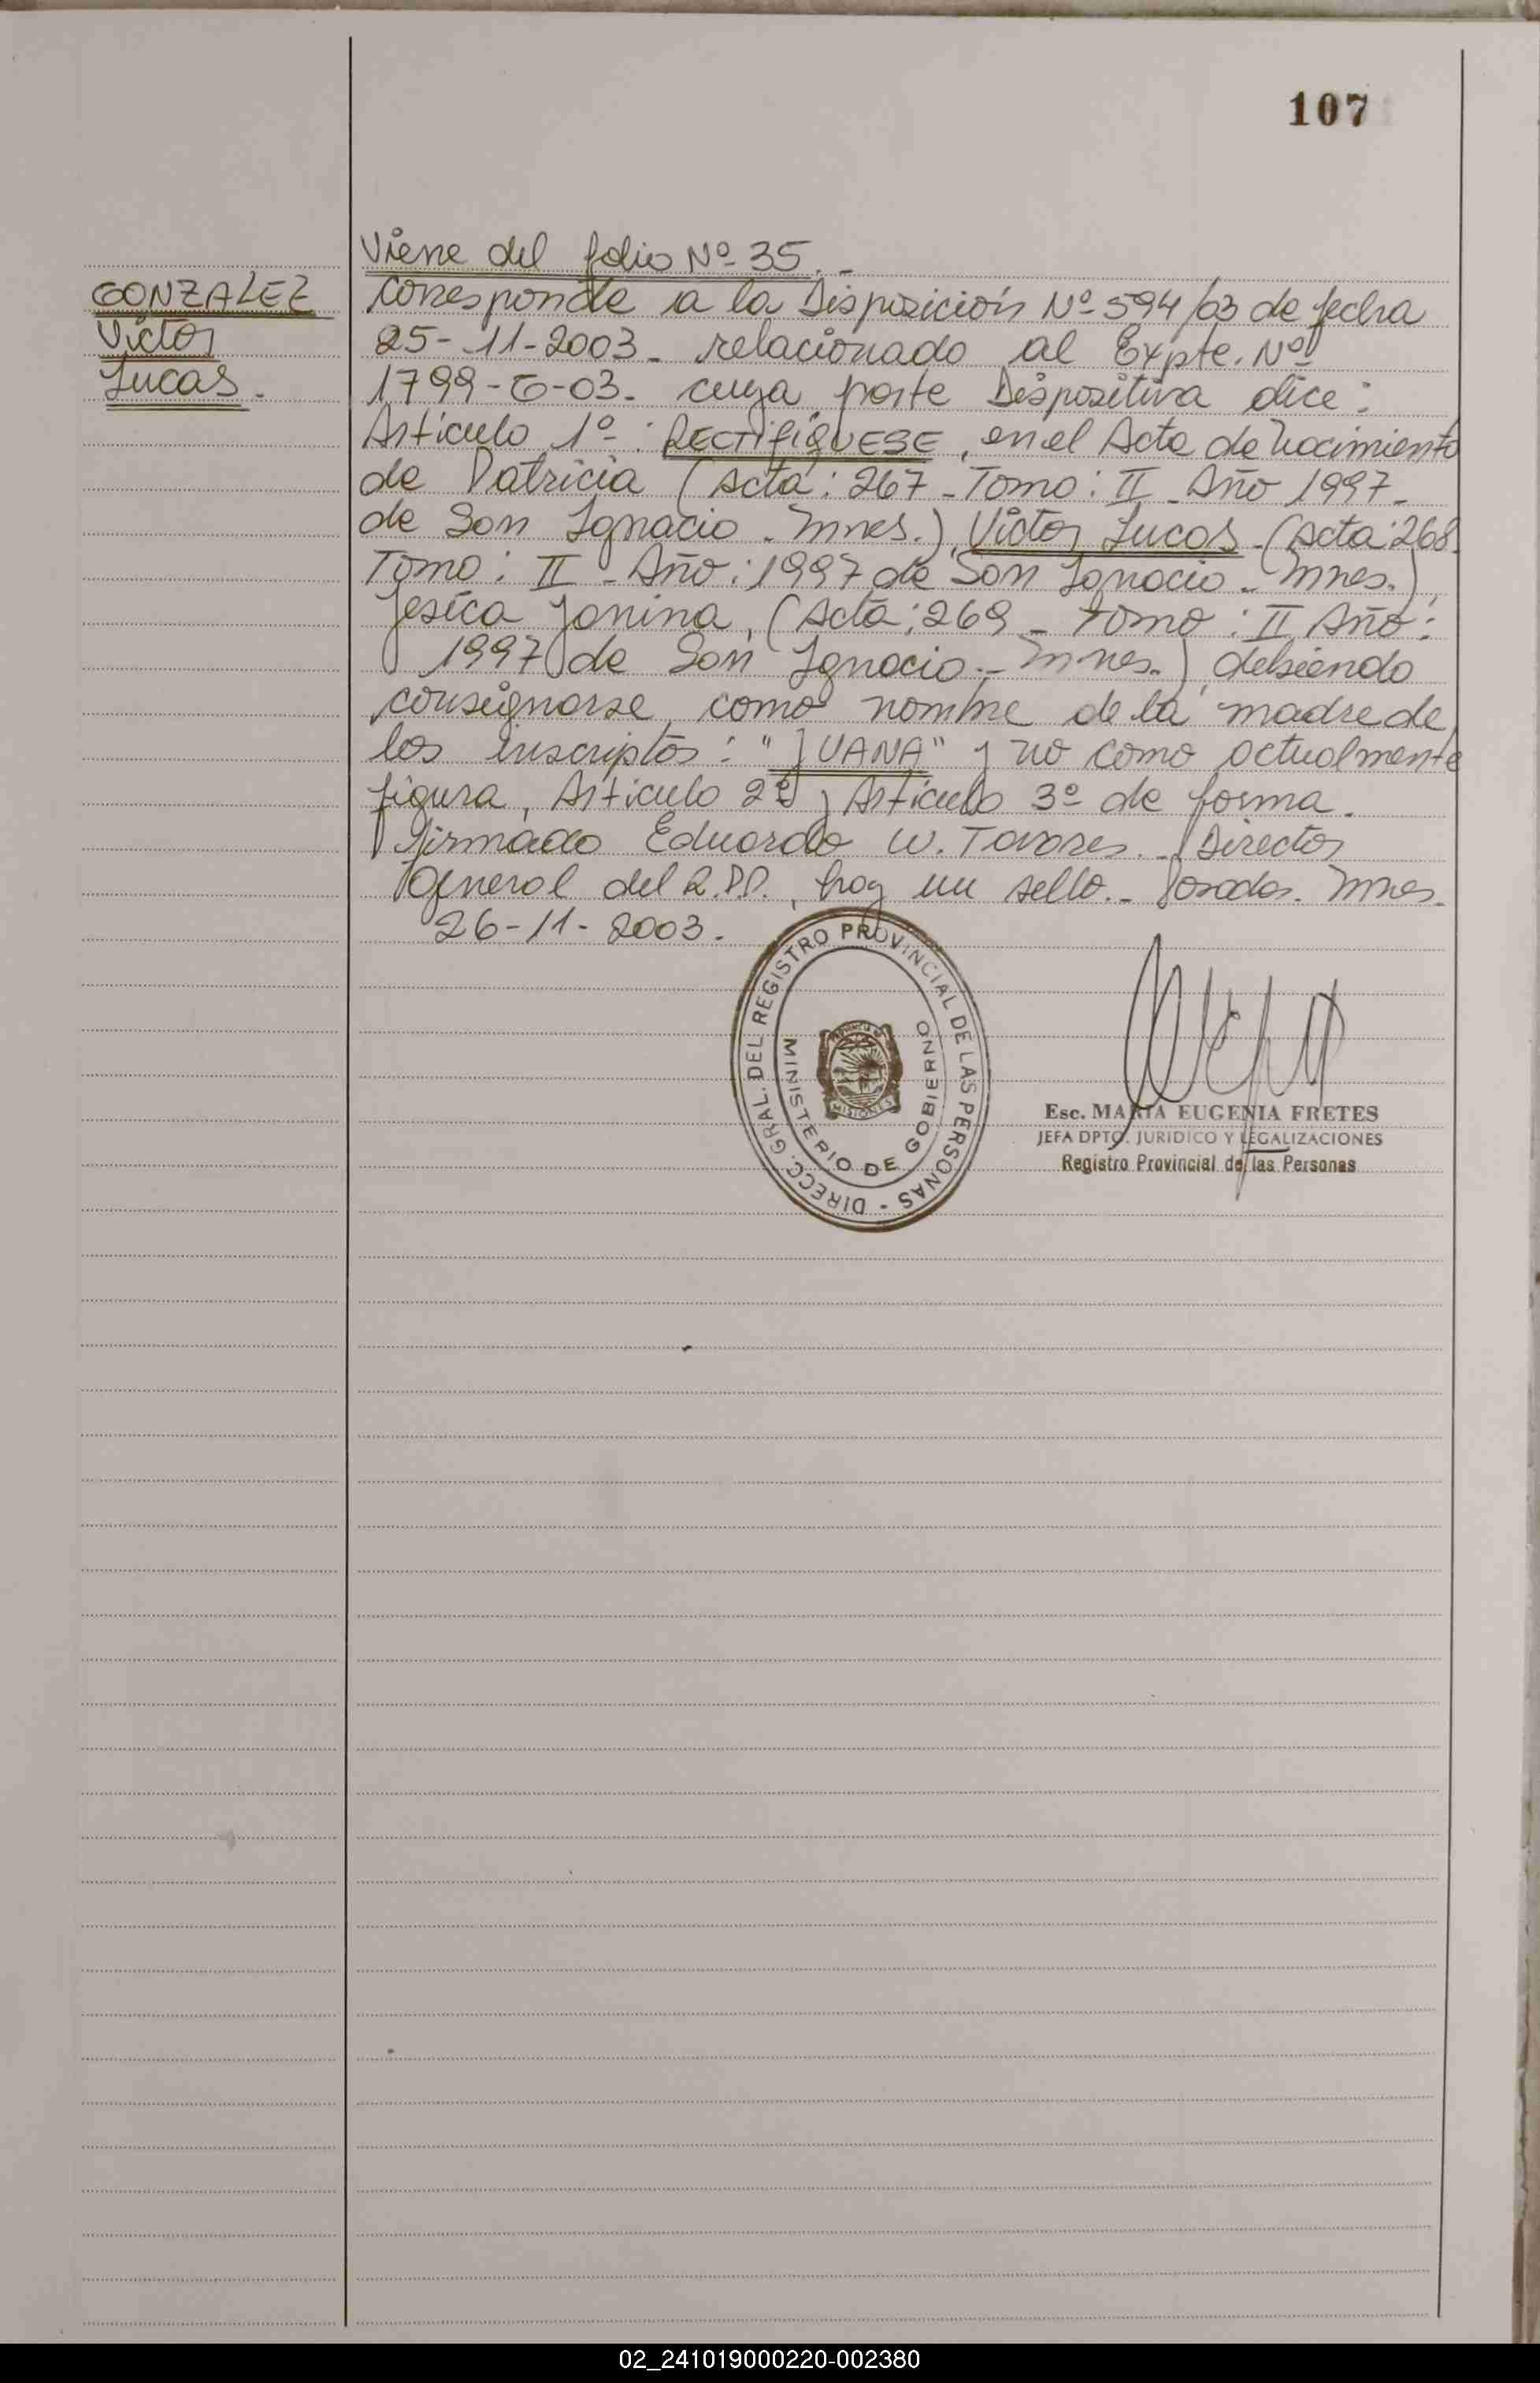 107
Viene del folio Nº 35.-
GONZALEZ
Victor
Lucas.
Corresponde a la Disposición Nº 594/03 de fecha
25-11-2003- relacionado al Expte. Nº
1799-G-03- cuya parte Dispositiva dice:
Artículo 1º-: RECTIFIQUESE, en el Acta de nacimiento
de Patricia (Acta: 267-Tomo: II-Año 1997-
de San Ignacio. Mnes.), Victor Lucas-(Acta:268-
Tomo: II-Año:1997 de San Ignacio-Mnes.),
Jesica Janina, (Acta:269-tomo: II Año:
1997 de San Ignacio.- Mnes.) debiendo
consignarse como nombre de la madre de
los inscriptos: "JUANA" y no como actualmente
figura, Artículo 2º y Artículo 3º de forma.
firmado Eduardo W. Tavares.- Director
General del R.P.P., hay un sello.- Posadas. Mnes.
26-11-2003.
DIRECC. GRAL. DEL REGISTRO PROVINCIAL DE LAS PERSONAS -
MINISTERIO DE GOBIERNO
MISIONES
Esc. MARIA EUGENIA FRETES
JEFA DPTO. JURIDICO Y LEGALIZACIONES
Registro Provincial de las Personas
02_241019000220-002380